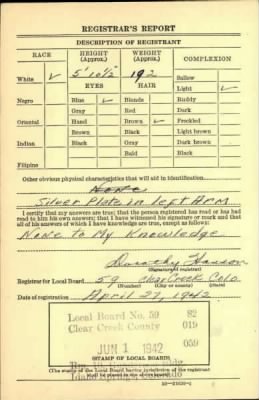 REGISTRAR'S REPORT
DESCRIPTION OF REGISTRANT
RACE HEIGHT (Approx.) WEIGHT (Approx.) COMPLEXION
White ✓ 5' 10½" 192 Sallow
EYES HAIR Light ✓
Negro Blue ✓ Blonde Ruddy
Gray Red Dark
Oriental Hazel Brown ✓ Freckled
Brown Black Light brown
Indian Black Gray Dark brown
Bald Black
Filipino
Other obvious physical characteristics that will aid in identification
None
Silver Plate in left Arm
I certify that my answers are true; that the person registered has read or has had
read to him his own answers; that I have witnessed his signature or mark and that
all of his answers of which I have knowledge are true, except as follows:
None to My Knowledge
Dorothy
(Signature of registrar)
Registrar for Local Board 59 Clear Creek Colo.
(Number) (City or county) (State)
Date of registration April 27, 1942
Local Board No. 59 82
Clear Creek County 019
JUN 1 1942 059
Idaho Springs, Colorado
(STAMP OF LOCAL BOARD)
(The stamp of the Local Board having jurisdiction of the registrant
shall be placed in the above space.)